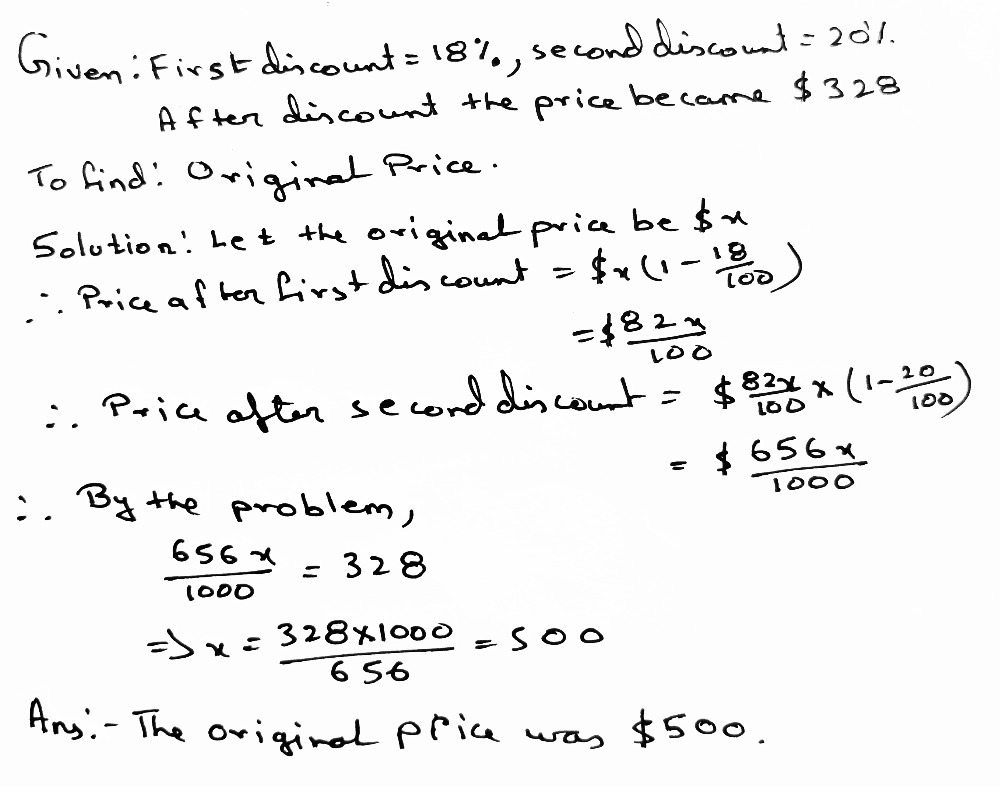 Given: First discount = 18%, second discount = 20%.
After discount the price became $328
To find: Original Price.
Solution: Let the original price be $x
∴ Price after first discount = $x(1 - 18/100)
= $82x/100
∴ Price after second discount = $82x/100 × (1 - 20/100)
= $656x/1000
∴ By the problem,
656x/1000 = 328
=> x = 328×1000/656 = 500
Ans:- The original price was $500.